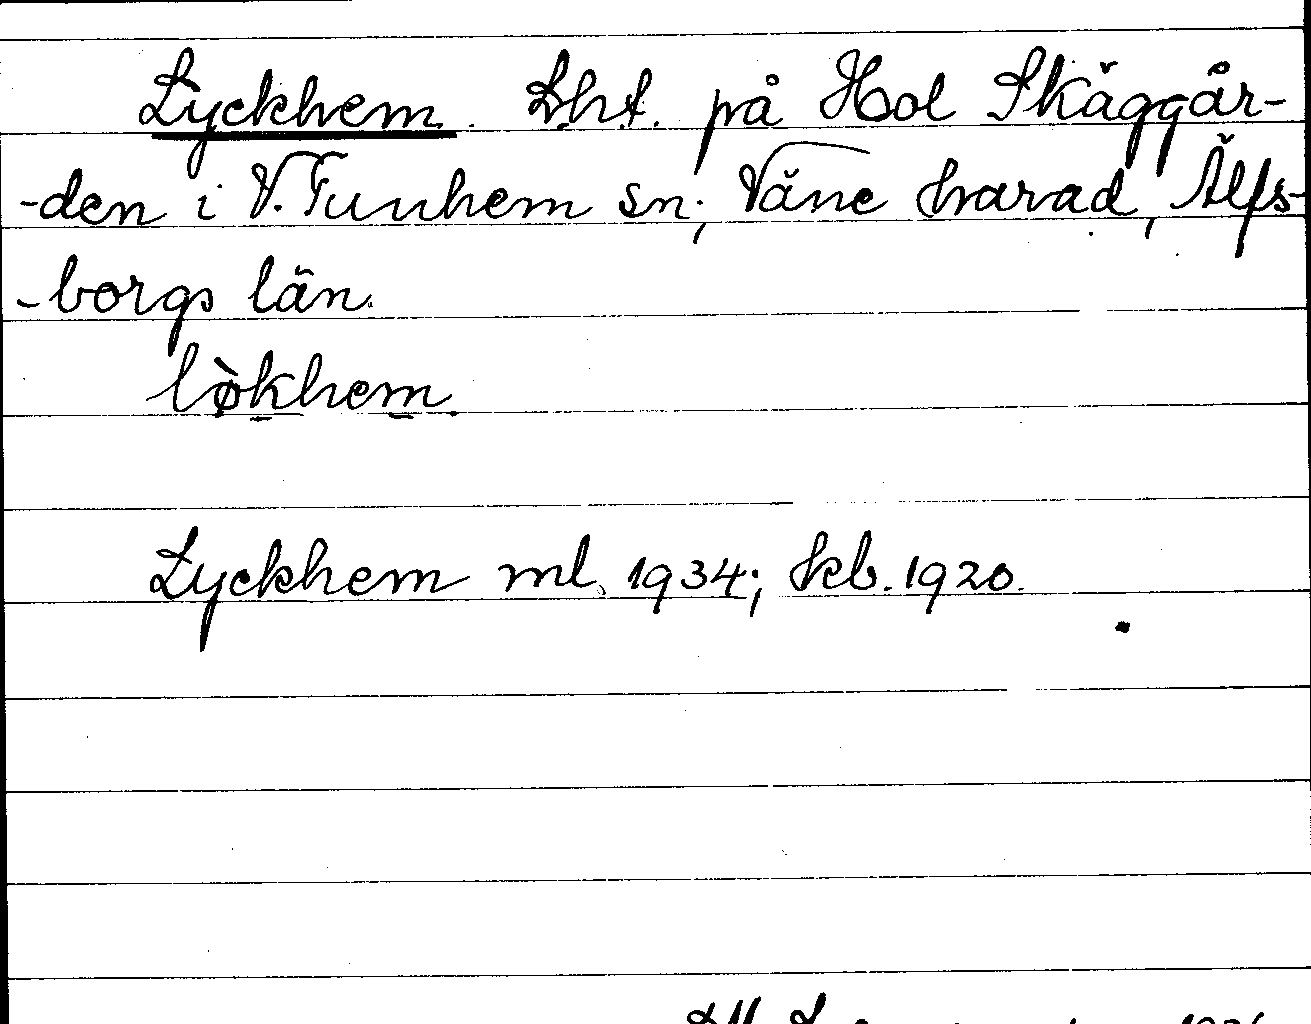 Lyckhem. Lht. på Hol Skäggår-
-den i V. Tunhem sn; Väne harad, Älfs-
-borgs län.
lø̀khem.
Lyckhem ml. 1934; kb. 1920.